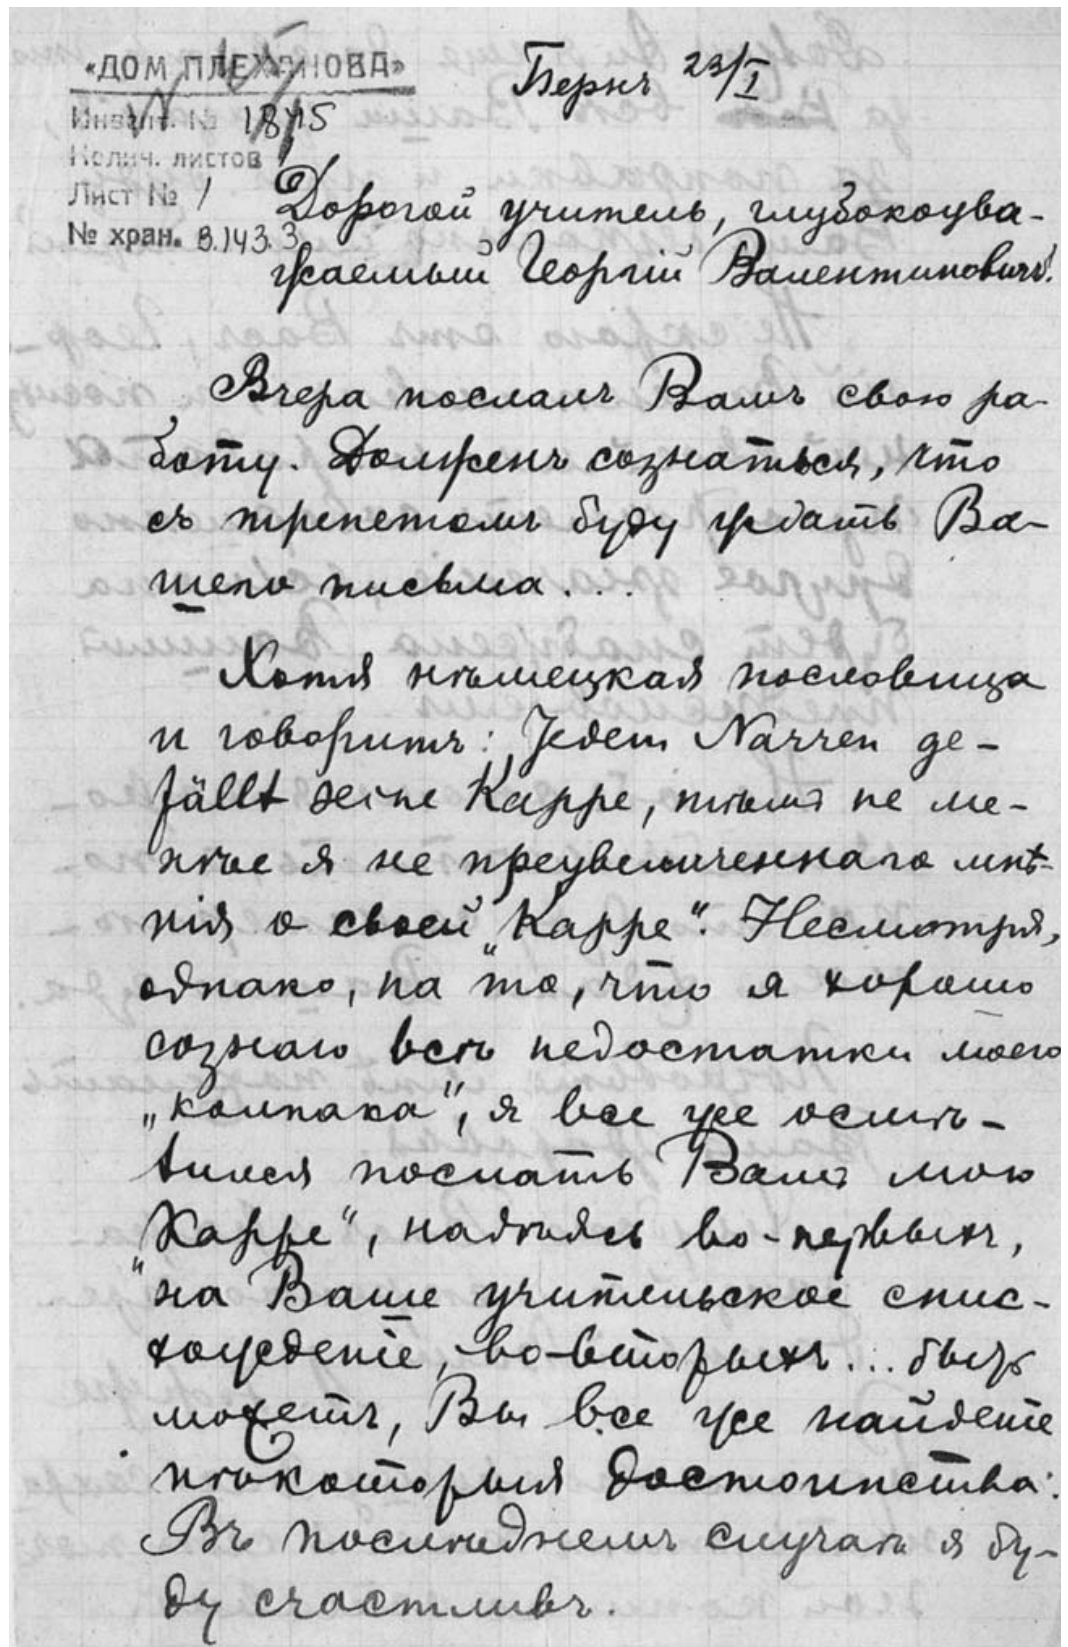 «ДОМ ПЛЕХАНОВА»
Инвент. № 1845
Колич. листов
Лист № 1
№ хран. В.143.3
Бернъ 23/I
Дорогой учитель, глубокоува-
жаемый Георгій Валентиновичъ!
Вчера послалъ Вамъ свою ра-
боту. Долженъ сознаться, что
съ трепетомъ буду ждать Ва-
шего письма...
Хотя нѣмецкая пословица
и говоритъ: Jedem Narren ge-
fällt seine Kappe, тѣмъ не ме-
нѣе я не преувеличеннаго мнѣ-
нія о своей „Kappe“. Несмотря,
однако, на то, что я хорошо
сознаю всѣ недостатки моего
„колпака“, я все же осмѣ-
лился послать Вамъ мою
„Kappe“, надѣясь во-первыхъ,
на Ваше учительское снис-
хожденіе, во-вторыхъ... быть
можетъ, Вы все же найдете
нѣкоторыя достоинства.
Въ послѣднемъ случаѣ я бу-
ду счастливъ.